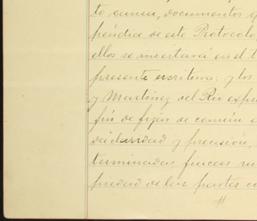 to causa, documentos q
péndice de este Protocolo
ellos se insertará en el t
presente escritura; y los
y Martínez del Rio expre
fin de fijar de comun a
da claridad y precision,
terminadas fincas
piedad de las partes co